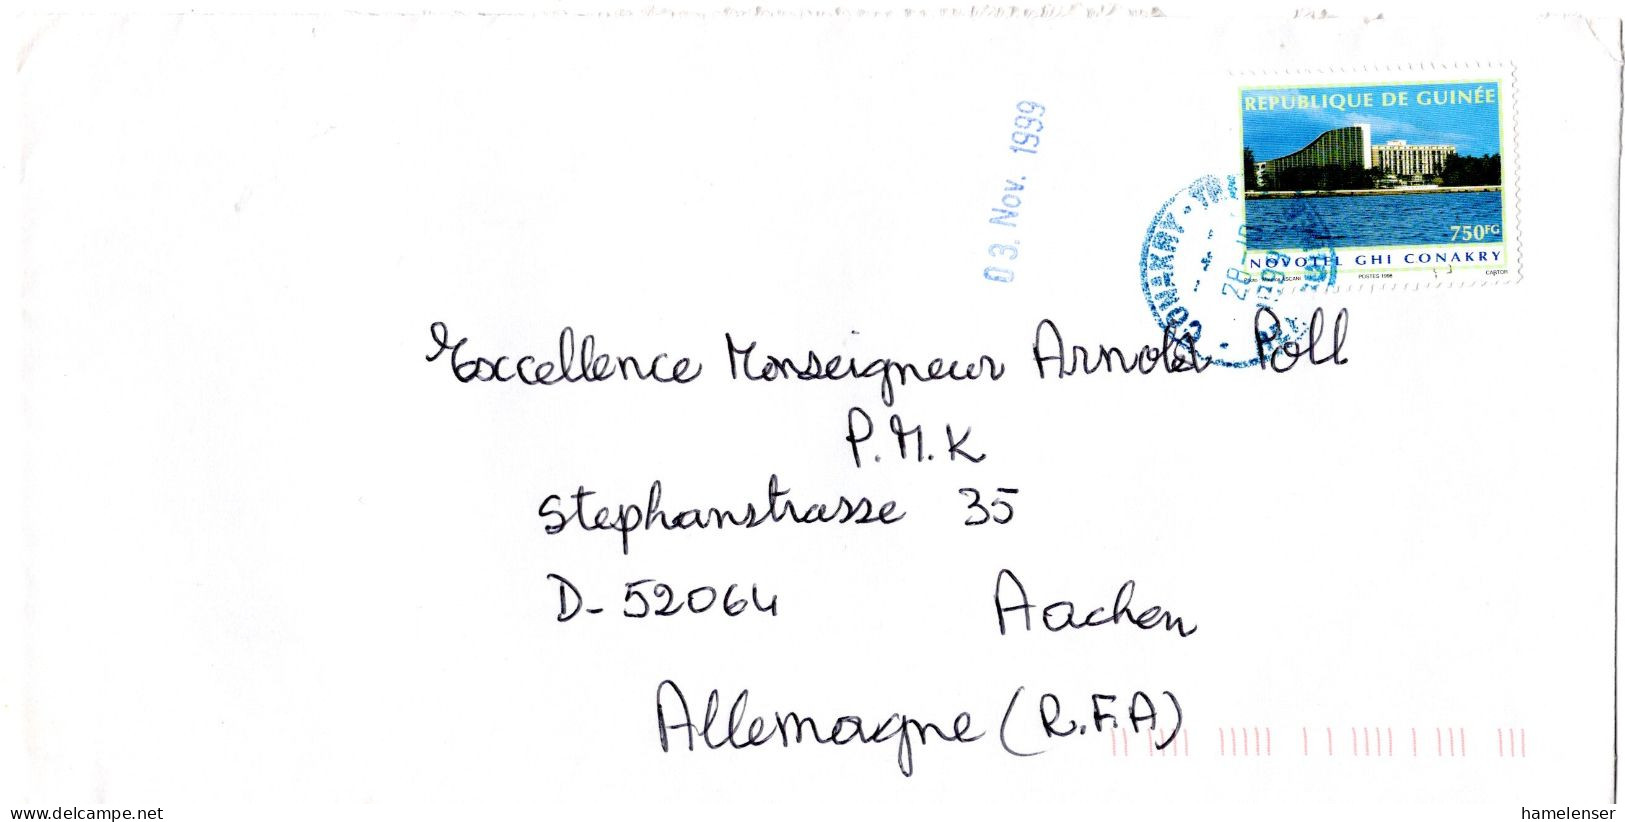 03. Nov. 1999
REPUBLIQUE DE GUINÉE
750FG
NOVOTEL GHI CONAKRY
POSTES 1998
CARTOR
CONAKRY
28-10
1999
Excellence Monseigneur Arnold Poll
P.M.K
Stephanstrasse 35
D-52064 Aachen
Allemagne (R.F.A)
www.delcampe.net
hamelenser